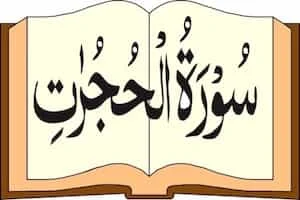 سُورَةُ الْحُجُرٰتِ